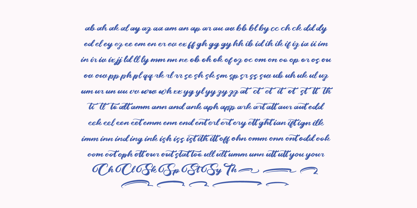 ab ah ak al ay az ua am an ap ar au av bb bl by cc ch ck dd dy
ed el ey ez ee em en er ev ex ff gh gg yy hh ib id ih ik if iz ia ii im
in ir iv ix jj ld ll ly mm nn ne ob oh ok ol of oz oc om on oo op or os ou
ow ox oy pp ph pl qq rk rl rr se sh sk sm sp sr ss sw ub uh uk ul uz
um ur un uu vv ww wh ex yg yl yy zy zz at ct et it ot st tt th
tl tt to att umm ann and ank aph app ark art att aur aut edd
eck eel een eet emm enn end ent erl ert ery ett ght ian ift ign ilk
imm inn ind ing ink ish iss ist ith itt off ohn omm onn ont odd ook
oom oot oph ott our out stat too ull utt umm unn utt you your
Ch Cl Sk Sp St Sy Th